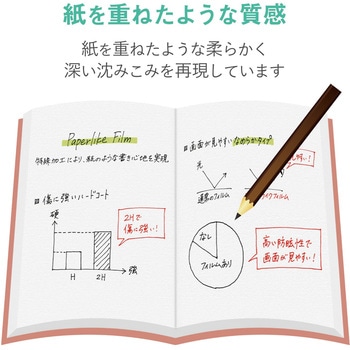 紙を重ねたような質感
紙を重ねたような柔らかく
深い沈みこみを再現しています
Paperlike Film
特殊加工により、紙のような書き心地を実現
傷に強いハードコート
硬
2Hで
傷に強い!
H
2H
強
画面が見やすいなめらかタイプ
光
通常のフィルム
なし
フィルムあり
高い防眩性で
画面が見やすい!